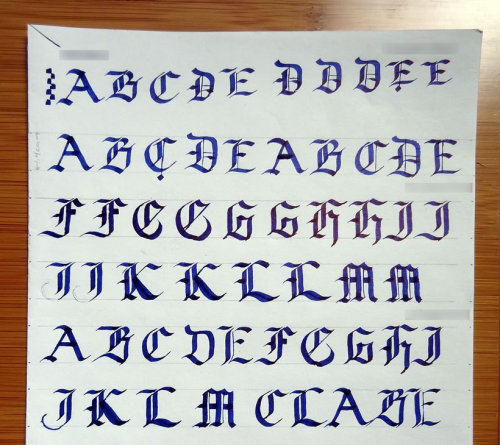 A B C D E D D D E E
A B C D E A B C D E
F F G G G G H H I I
J J K K L L M M
A B C D E F G G H I
J K L M C L A B E